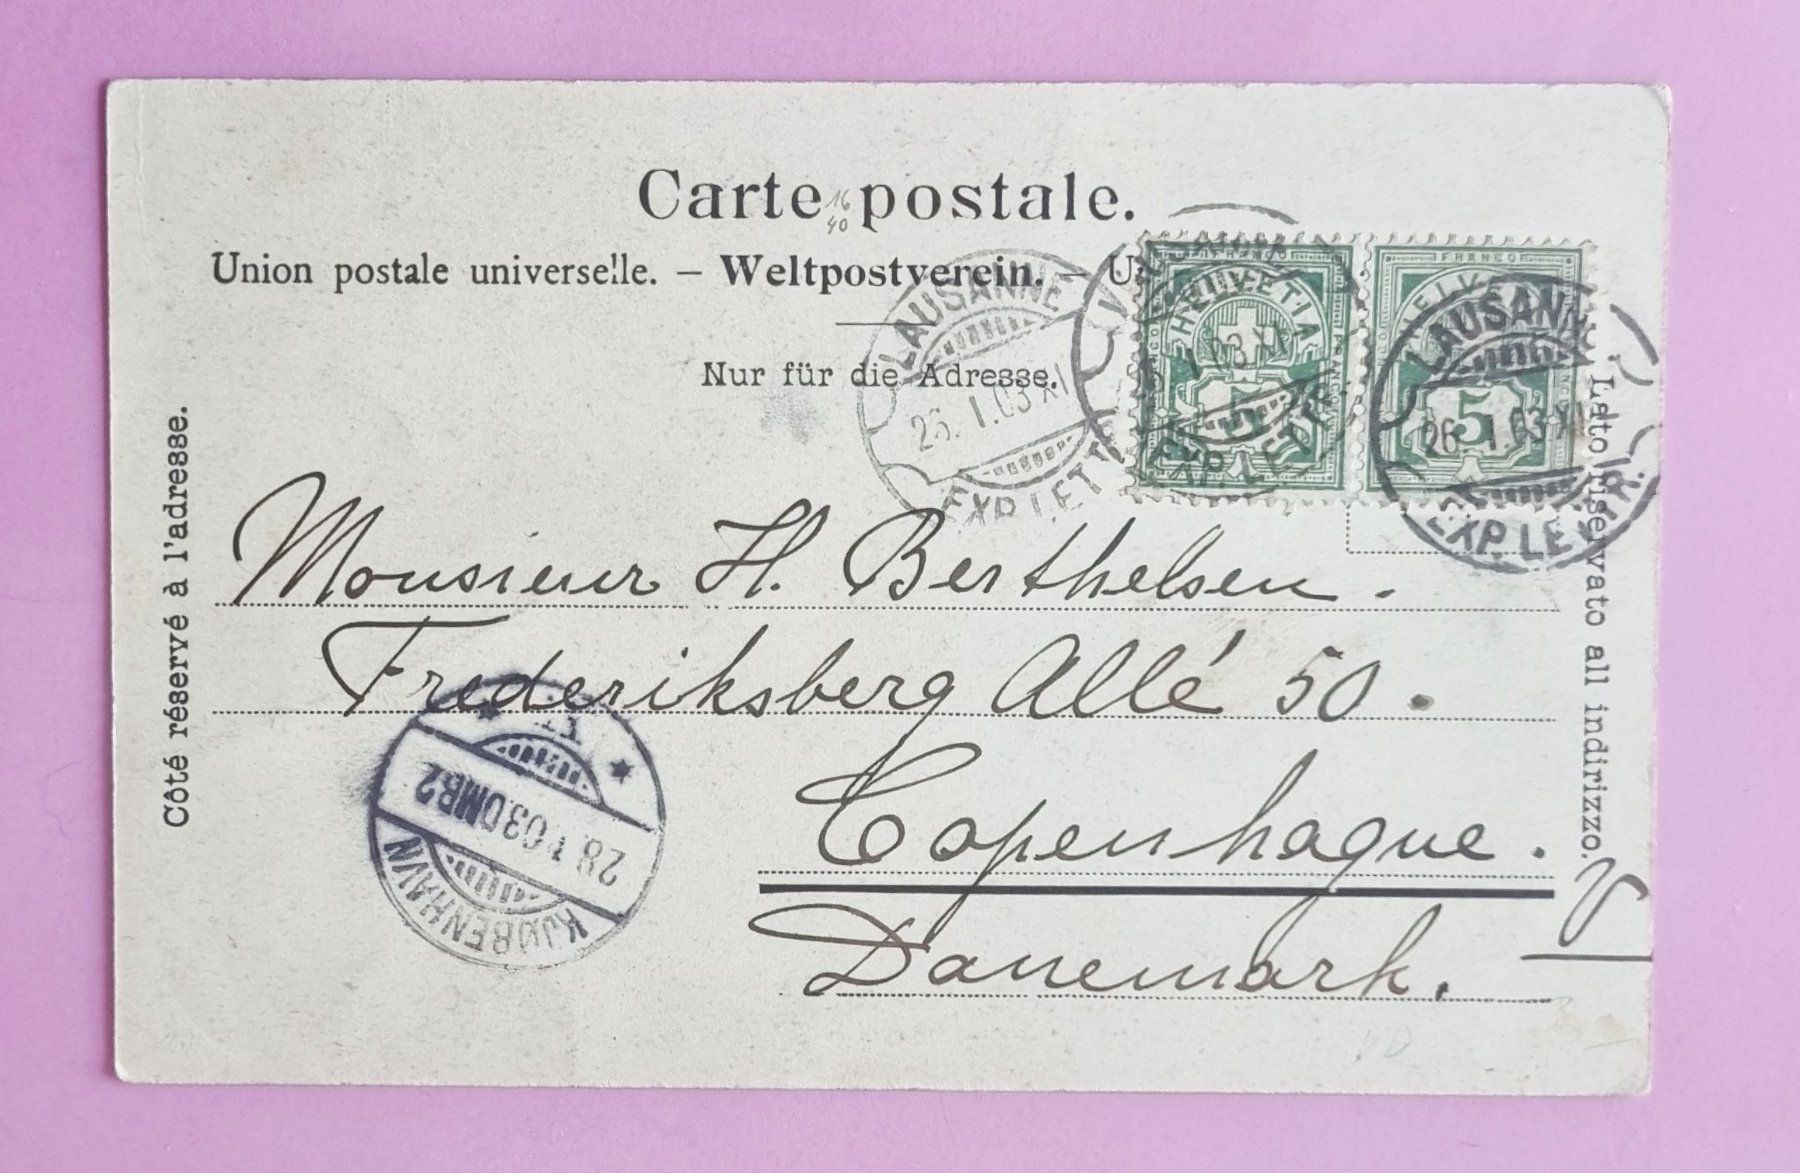 Carte postale.
16
40
Union postale universelle. – Weltpostverein. – U
Nur für die Adresse.
Côté réservé à l'adresse.
Lato riservato all indirizzo.
FRANCO
HELVETIA
5
FRANCO
HELVETIA
5
LAUSANNE
26. 1.03 XI
EXP. LETTR.
LAUSANNE
26. 1.03 XI
EXP. LETTR.
LAUSANNE
26. 1.03 XI
EXP. LETTR.
Monsieur H. Berthelsen.
Frederiksberg Allé 50.
Copenhague.
Danemark.
KJØBENHAVN
28.1.03.OMB2